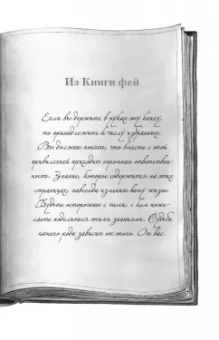 Из Книги фей
Если вы держите в руках эту книгу,
то принадлежите к числу избранных.
Вы должны знать, что вместе с этой
привилегией приходит огромная ответствен-
ность. Знание, которое содержится на этих
страницах, навсегда изменит вашу жизнь.
Будьте осторожны с теми, с кем поже-
лаете поделиться этими знаниями. Судьба
нашего рода зависит от этого. От вас.